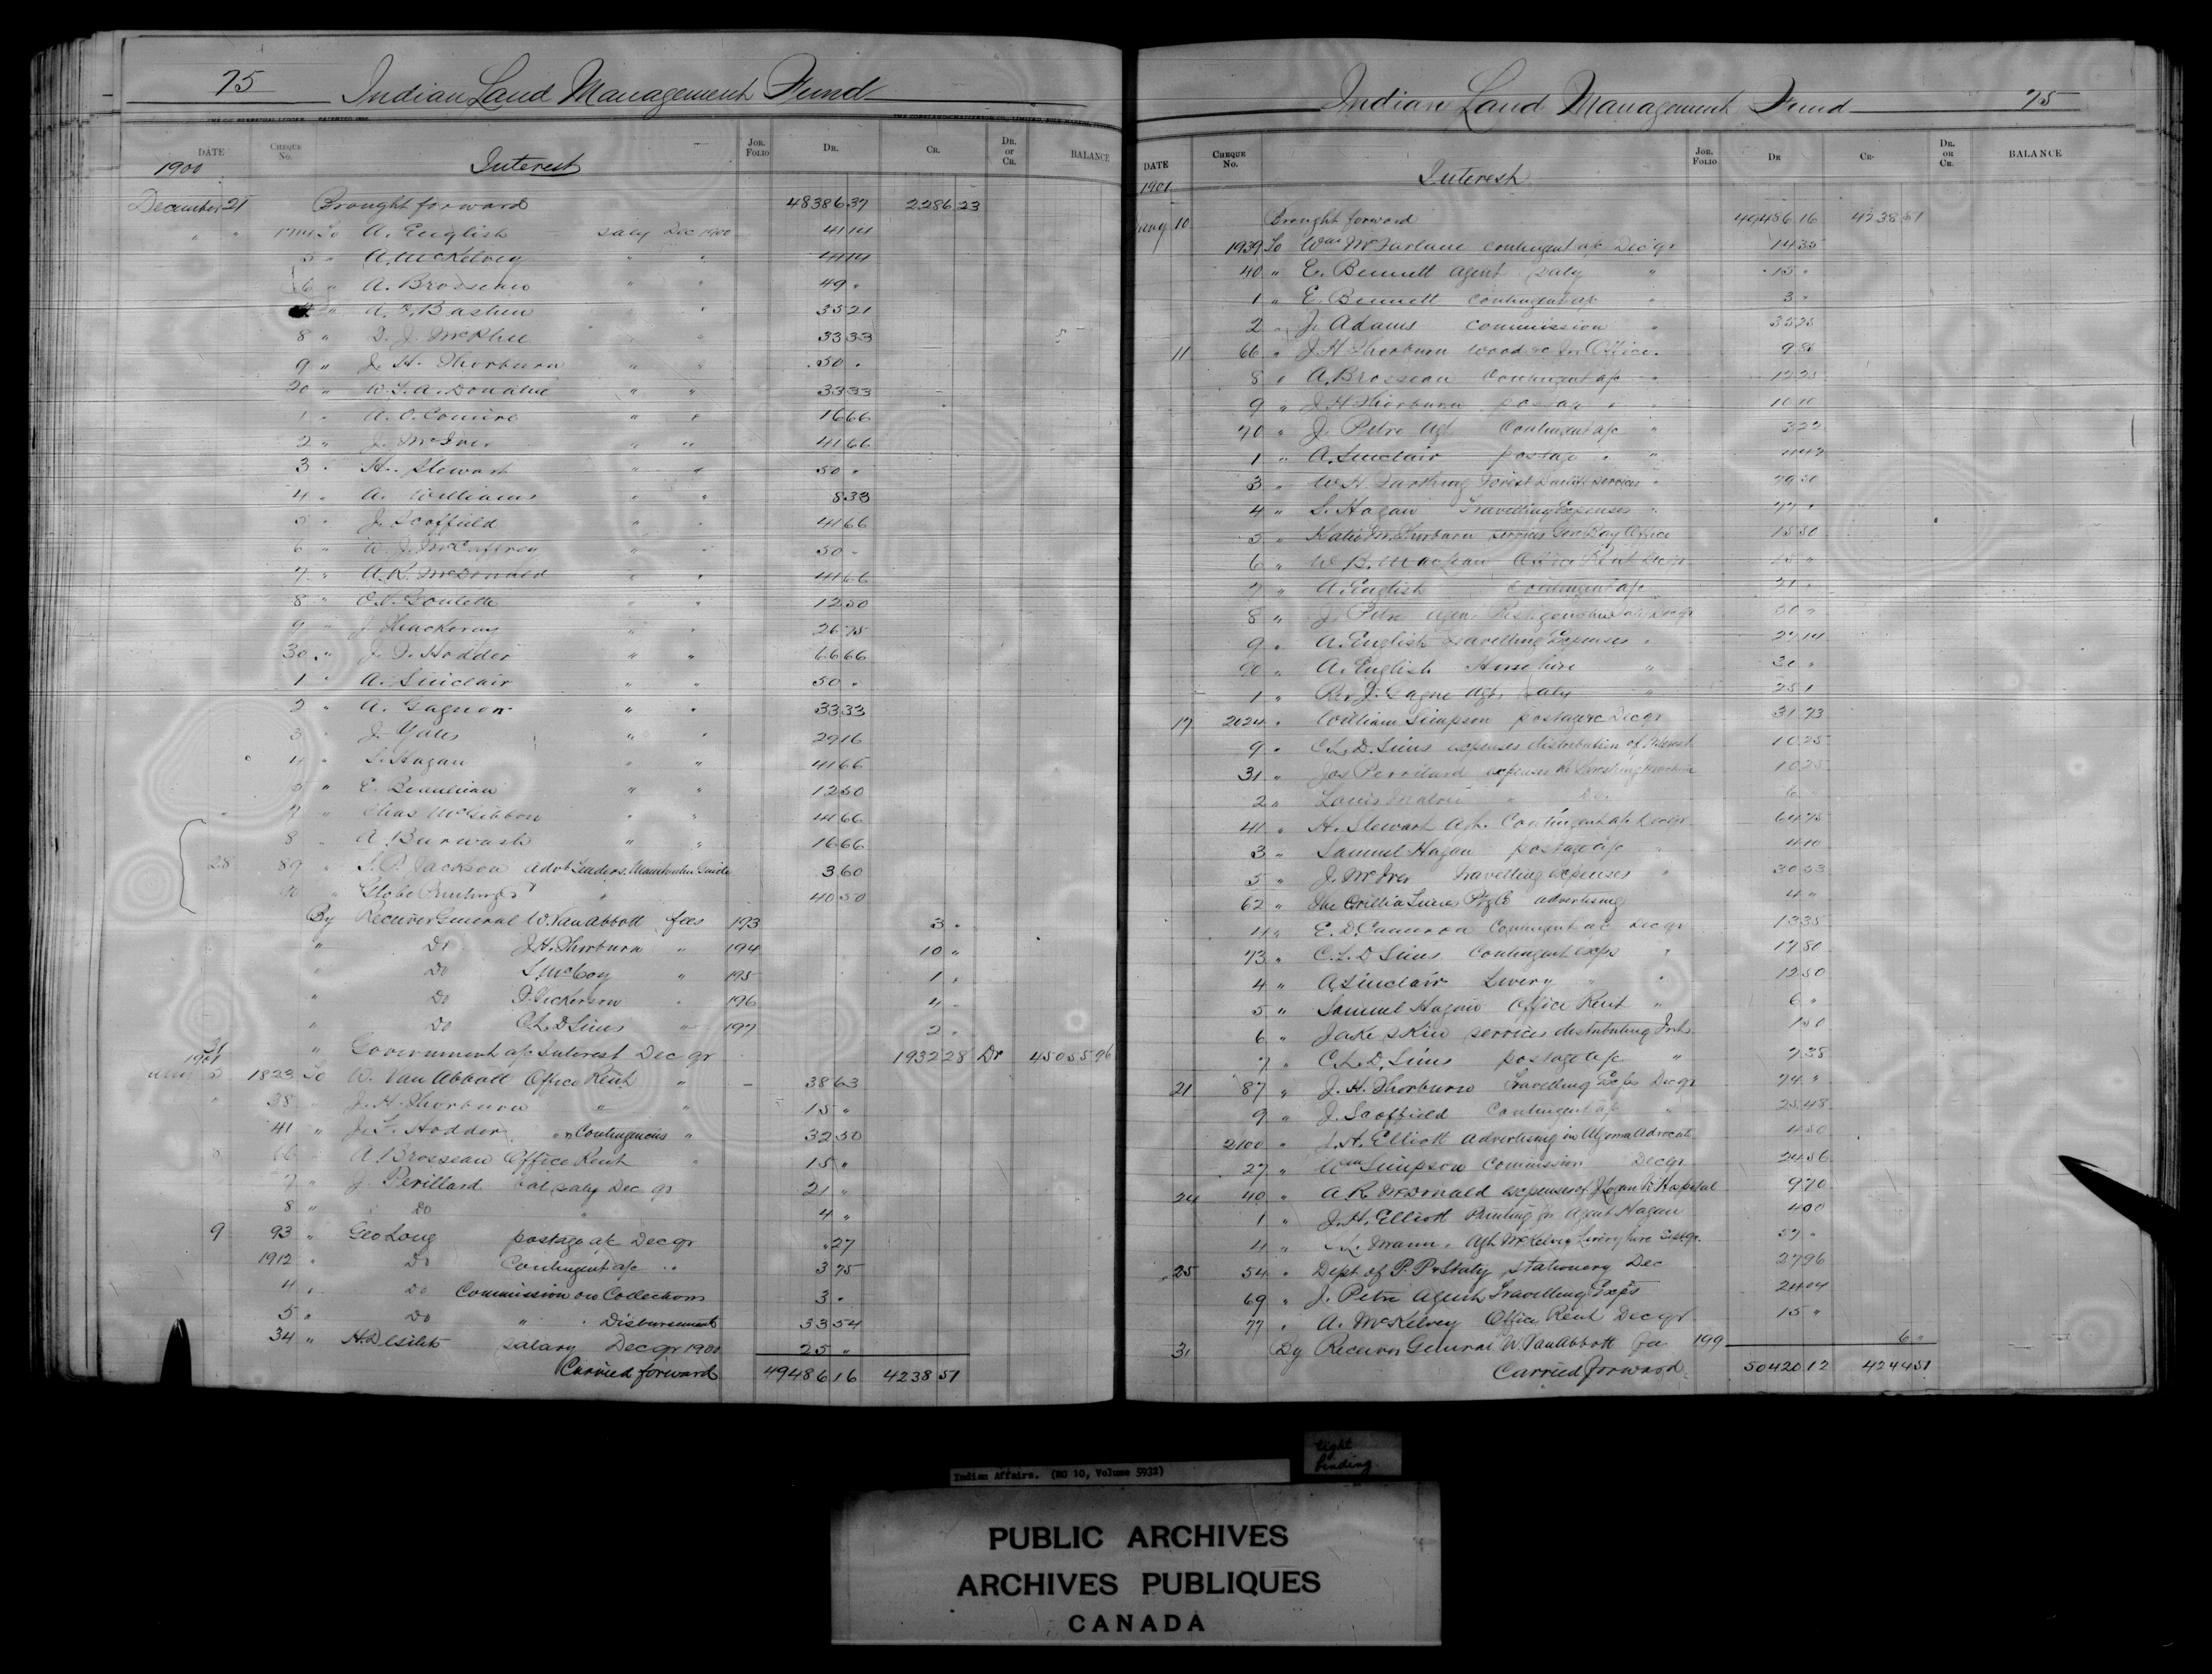 75 Indian Land Management Fund
DATE CHEQUE No. Interest JOR. FOLIO DR. CR. DR. or CR. BALANCE
1900
December 21 Brought forward 48386 37 2286 23
" " 1714 To A. English saly Dec 1900 41 14
5 " A. McKelvey " " 41 14
6 " A. Brosseau " " 49 "
" A. O. Bastien " " 35 21
8 " D. J. McPhee " " 33 33
9 " J. H. Thorburn " " 50 "
20 " W. S. A. Donahue " " 33 33
1 " A. O. Comire " " 16 66
2 " J. McIver " " 41 66
3 " H. Stewart " " 50 "
4 " A. Williams " " 8 33
5 " J. Scoffield " " 41 66
6 " W. J. McCaffrey " " 50 "
7 " A. R. McDonald " " 41 66
8 " O. N. Goulette " " 12 50
9 " J. Thackeray " " 26 75
30 " J. F. Hodder " " 66 66
1 " A. Sinclair " " 50 "
2 " A. Gagnon " " 33 33
3 " J. Yates " " 29 16
4 " S. Hagan " " 41 66
5 " E. Beaulieau " " 12 50
7 " Chas McGibbon " " 41 66
8 " A. Burwash " " 16 66
28 89 " Jackson advt Lenders, Manitoulin Guide 3 60
90 " Globe Printing " 40 50
By Receiver General W. Van Abbott fees 193 3 "
" Do J. H. Thorburn " 194 10 "
" Do S. McCoy " 195 1 "
" Do Dickerson " 196 4 "
" Do C. L. D. Sims " 197 2 "
31 " Government a/c Interest Dec qr 1932 28 Dr 45055 96
1901
1823 To W. Van Abbott Office Rent " 38 63
" 38 " J. H. Thorburn " " 15 "
41 " J. F. Hodder " " Contingencies " 32 50
8 66 " A. Brosseau Office Rent " 15 "
7 " J. Perillard bal saly Dec qr 21 "
8 " Do " 4 "
9 93 " Geo Long postage a/c Dec qr " 27
1912 " Do Contingent a/c " 3 75
4 " Do Commission on Collections 3 "
5 " Do " " Disbursements 33 54
34 " H. Desilets salary Dec qr 1900 25 "
Carried forward 49486 16 4238 51
Indian Land Management Fund 75
DATE CHEQUE No. Interest JOR. FOLIO DR CR. DR. or CR. BALANCE
1901
Jany 10 Brought forward 49486 16 4238 51
1939 To Wm McFarlane contingent a/c Dec qr 14 35
40 " E. Bennett agent saly " 15 "
1 " E. Bennett contingent a/c " 3 "
2 " J. Adams commission " 35 25
11 66 " J. H. Thorburn wood &c for Office "
8 " A. Brosseau Contingent a/c " 12 25
9 " J. H. Thorburn postage " " 10 10
70 " J. Petre Agt Contingent a/c " 3 22
1 " A. Sinclair postage " "
3 " W. H. Farthing Forest Guard services "
4 " S. Hagan Travelling Expenses "
5 " Katie M. Thorburn services Gore Bay Office 15 50
6 " W. B. Maclean Office Rent Decqr
7 " A. English Contingent a/c 21 "
8 " J. Petre Agent Restigouche Saly Decqr 50 "
9 " A. English travelling Expenses " 27 14
90 " A. English Horse hire " 30 "
1 " Rev J. Gagne Agt. saly " 25 "
17 2024 " William Simpson postage &c Decqr 31 73
9 " C. L. D. Sims expenses distribution of Interest 10 25
31 " Jos Perrillard expenses re Threshing machine 10 25
2 " Louis " Do. 6 "
41 " H. Stewart Agt. Contingent a/c Decqr 64 75
3 " Samuel Hagan postage a/c " 4 10
5 " J. McIver Travelling expenses " 30 53
62 " The Orillia Times Ptg Co advertising 4 "
4 " E. D. Cameron Contingent a/c Decqr 13 35
73 " C. L. D. Sims Contingent exps " 17 80
4 " A. Sinclair Livery " " 12 50
5 " Samuel Hagan Office Rent " 6 "
6 " Jake Skin services distributing Int 1 50
7 " C. L. D. Sims postage a/c " 7 35
21 87 " J. H. Thorburn Travelling Exps Decqr 74 "
9 " J. Scoffield Contingent a/c " 25 48
2100 " J. H. Elliott Advertising in Algoma Advocate 4 50
27 " Wm Simpson Commission Decqr 24 56
24 40 " A. R. McDonald expenses of J. Logan to Hospital 9 70
1 " J. H. Elliott Printing for Agent Hagan 4 00
4 " Mann, Agt McKelvey Livery hire Septqr. 57 "
25 54 " Dept of P. P. & Staty stationery Dec 27 96
69 " J. Petre Agent Travelling Exps 24 04
77 " A. McKelvey Office Rent Decqr 15 "
31 By Receiver General W. Van Abbott fee 199 6 "
Carried forward 50420 12 4244 51
tight binding
Indian Affairs. (RG 10, Volume 5932)
PUBLIC ARCHIVES
ARCHIVES PUBLIQUES
CANADA